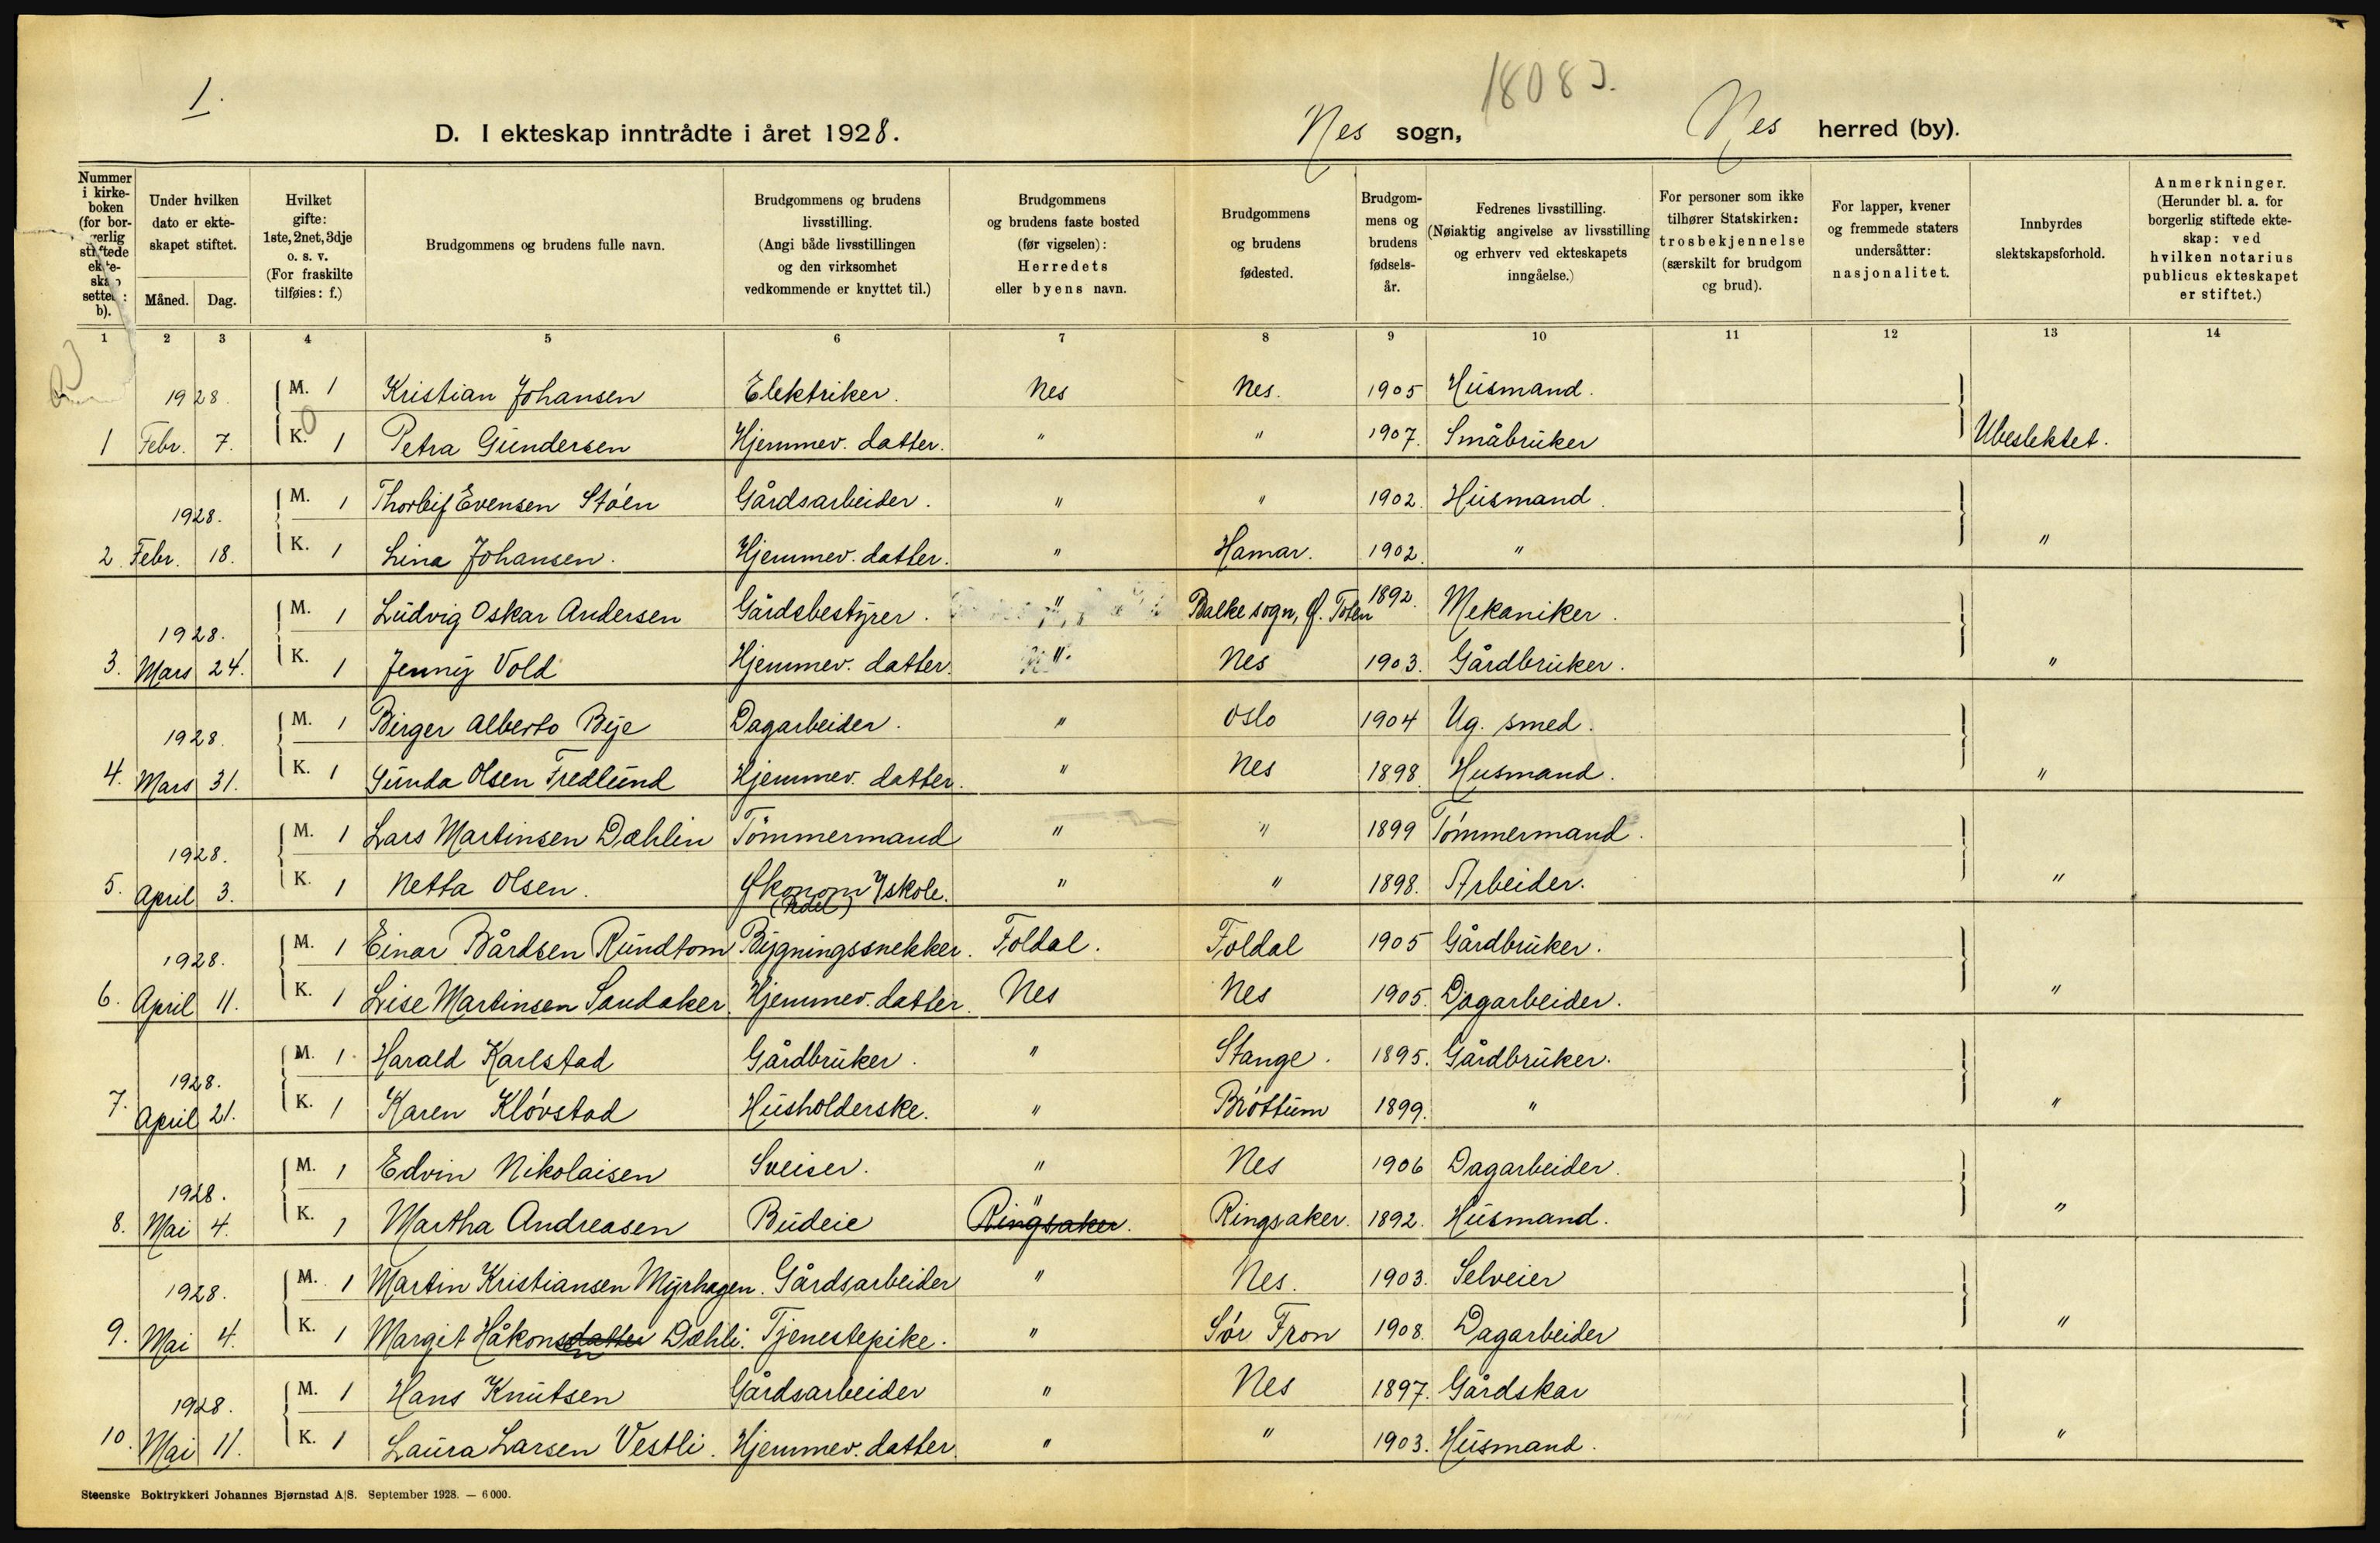 1.
18083.
D. I ekteskap inntrådte i året 1928. Nes sogn, Nes herred (by).
Nummer i kirkeboken (for borgerlig stiftede ekteskap settes: b). | Under hvilken dato er ekteskapet stiftet. Måned. Dag. | Hvilket gifte: 1ste, 2net, 3dje o. s. v. (For fraskilte tilføies: f.) | Brudgommens og brudens fulle navn. | Brudgommens og brudens livsstilling. (Angi både livsstillingen og den virksomhet vedkommende er knyttet til.) | Brudgommens og brudens faste bosted (før vigselen): Herredets eller byens navn. | Brudgommens og brudens fødested. | Brudgommens og brudens fødselsår. | Fedrenes livsstilling. (Nøiaktig angivelse av livsstilling og erhverv ved ekteskapets inngåelse.) | For personer som ikke tilhører Statskirken: trosbekjennelse (særskilt for brudgom og brud). | For lapper, kvener og fremmede staters undersåtter: nasjonalitet. | Innbyrdes slektskapsforhold. | Anmerkninger. (Herunder bl. a. for borgerlig stiftede ekteskap: ved hvilken notarius publicus ekteskapet er stiftet.)
1 2 3 4 5 6 7 8 9 10 11 12 13 14
1928. M. 1 Kristian Johansen Elektriker. Nes Nes. 1905 Husmand.
1 Febr. 7. K. 1 Petra Gundersen Hjemmev. datter. " " 1907. Småbruker Ubeslektet.
1928. M. 1 Thorleif Evensen Støen Gårdsarbeider. " " 1902. Husmand.
2. Febr. 18. K. 1 Lina Johansen. Hjemmev. datter. " Hamar. 1902. " "
1928. M. 1 Ludvig Oskar Andersen Gårdsbestyrer. " Balke sogn, Ø. Toten 1892. Mekaniker.
3. Mars 24. K. 1 Jenny Vold Hjemmev. datter. " Nes 1903. Gårdbruker. "
1928. M. 1 Birger Alberto Bye Dagarbeider. " Oslo 1904 Ug. smed.
4. Mars 31. K. 1 Gunda Olsen Fredlund Hjemmev. datter. " Nes 1898. Husmand. "
1928. M. 1 Lars Martinsen Dæhlin Tömmermand " " 1899 Tømmermand.
5. April 3. K. 1 Netta Olsen. Økonom \ skole. " " 1898. Arbeider. "
1928. M. 1 Einar Bårdsen Rundtom Bygningssnekker. Foldal. Foldal 1905 Gårdbruker.
6. April 11. K. 1 Lise Martinsen Sandaker. Hjemmev. datter. Nes Nes 1905. Dagarbeider. "
1928. M. 1. Harald Karlstad Gårdbruker. " Stange. 1895. Gårdbruker.
7. April 21. K. 1 Karen Kløvstad Husholderske. " Brøttum 1899. " "
1928. M. 1 Edvin Nikolaisen Sveiser. " Nes 1906 Dagarbeider.
8. Mai 4. K. 1 Martha Andreasen Budeie " Ringsaker. Ringsaker. 1892. Husmand. "
1928. M. 1 Martin Kristiansen Myrhagen. Gårdsarbeider " Nes. 1903. Selveier
9. Mai 4. K. 1 Margit Håkonsdatter en Dæhli. Tjenestepike. " Sør Fron 1908. Dagarbeider "
1928. M. 1 Hans Knutsen Gårdsarbeider " Nes 1897. Gårdskar
10. Mai 11. K. 1 Laura Larsen Vestli. Hjemmev. datter. " " 1903. Husmand. "
Steenske Boktrykkeri Johannes Bjørnstad A/S. September 1928. — 6000.